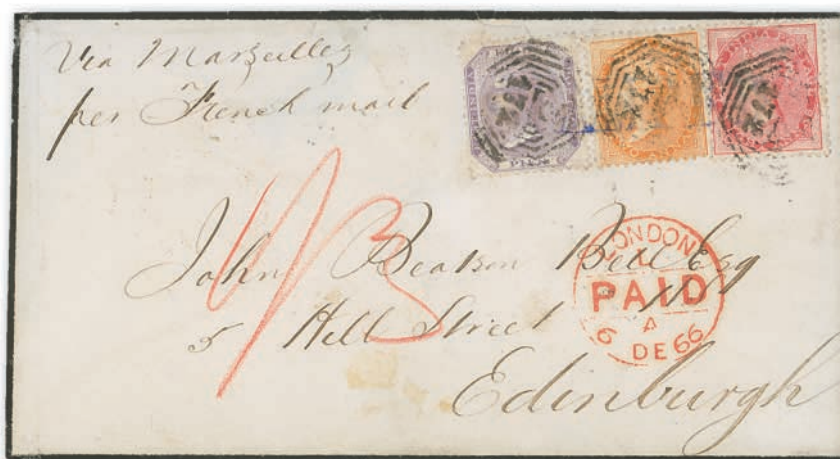 Via Marseilles
per French mail
INDIA
PIAIS
INDIA POSTAGE
John Beatson Bell Esq
5 Hill Street
Edinburgh
LONDON
PAID
A
6 DE 66
1/3